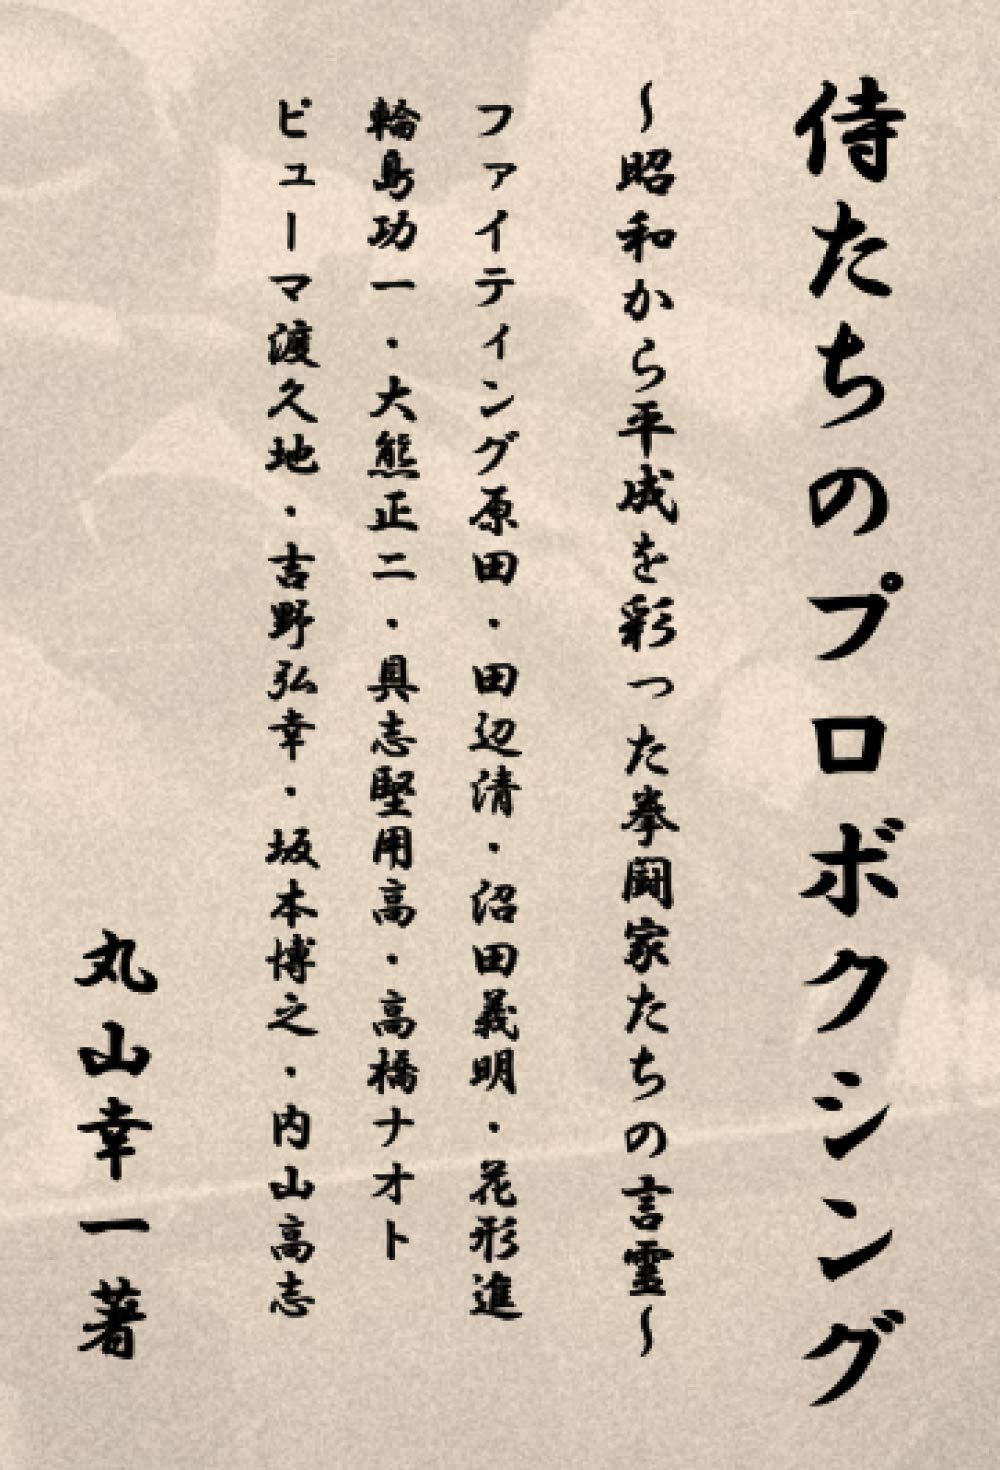 侍たちのプロボクシング
～昭和から平成を彩った拳闘家たちの言霊～
ファイティング原田・田辺清・沼田義明・花形進
輪島功一・大熊正二・具志堅用高・高橋ナオト
ピューマ渡久地・吉野弘幸・坂本博之・内山高志
丸山幸一著